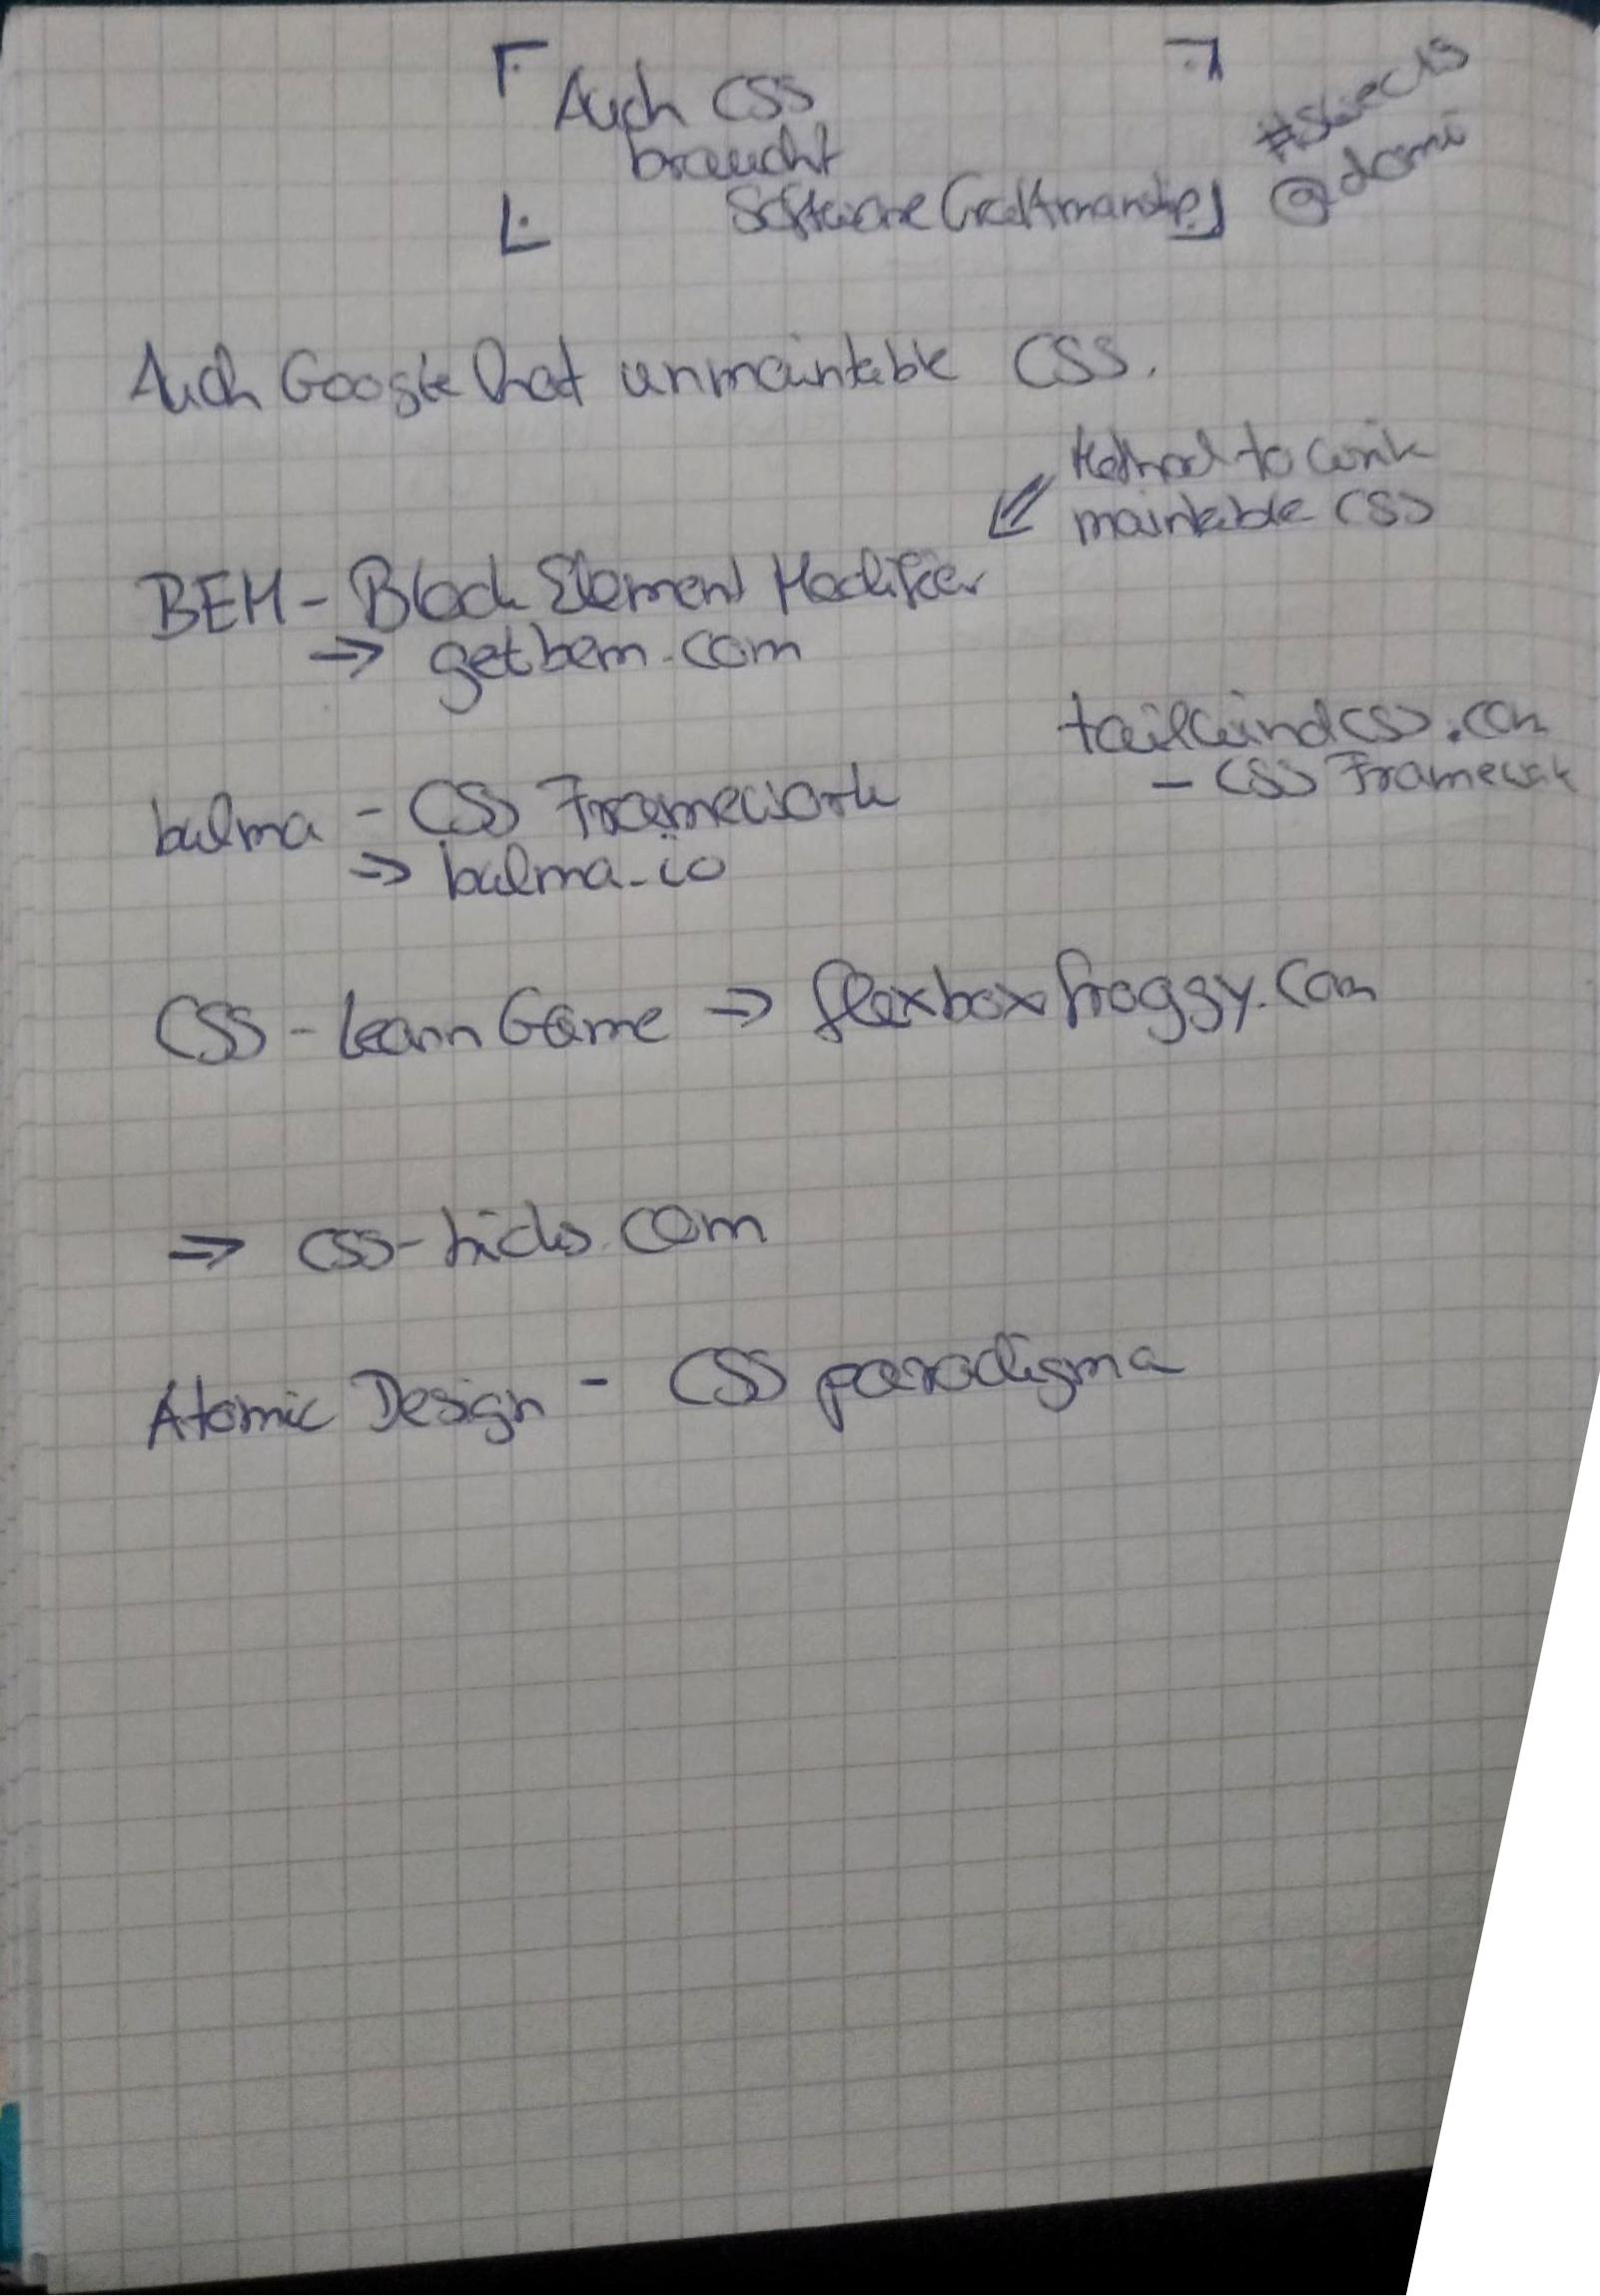 Auch CSS
braucht
Software Craftmanship
@domi
Auch Google hat unmaintable CSS.
Method to write
maintable CSS
BEM - Block Element Modifier
⇒ getbem.com
tailwindcss.com
- CSS Framework
bulma - CSS Framework
⇒ bulma.io
CSS - Learn Game ⇒ flexboxfroggy.com
⇒ css-tricks.com
Atomic Design - CSS paradigma